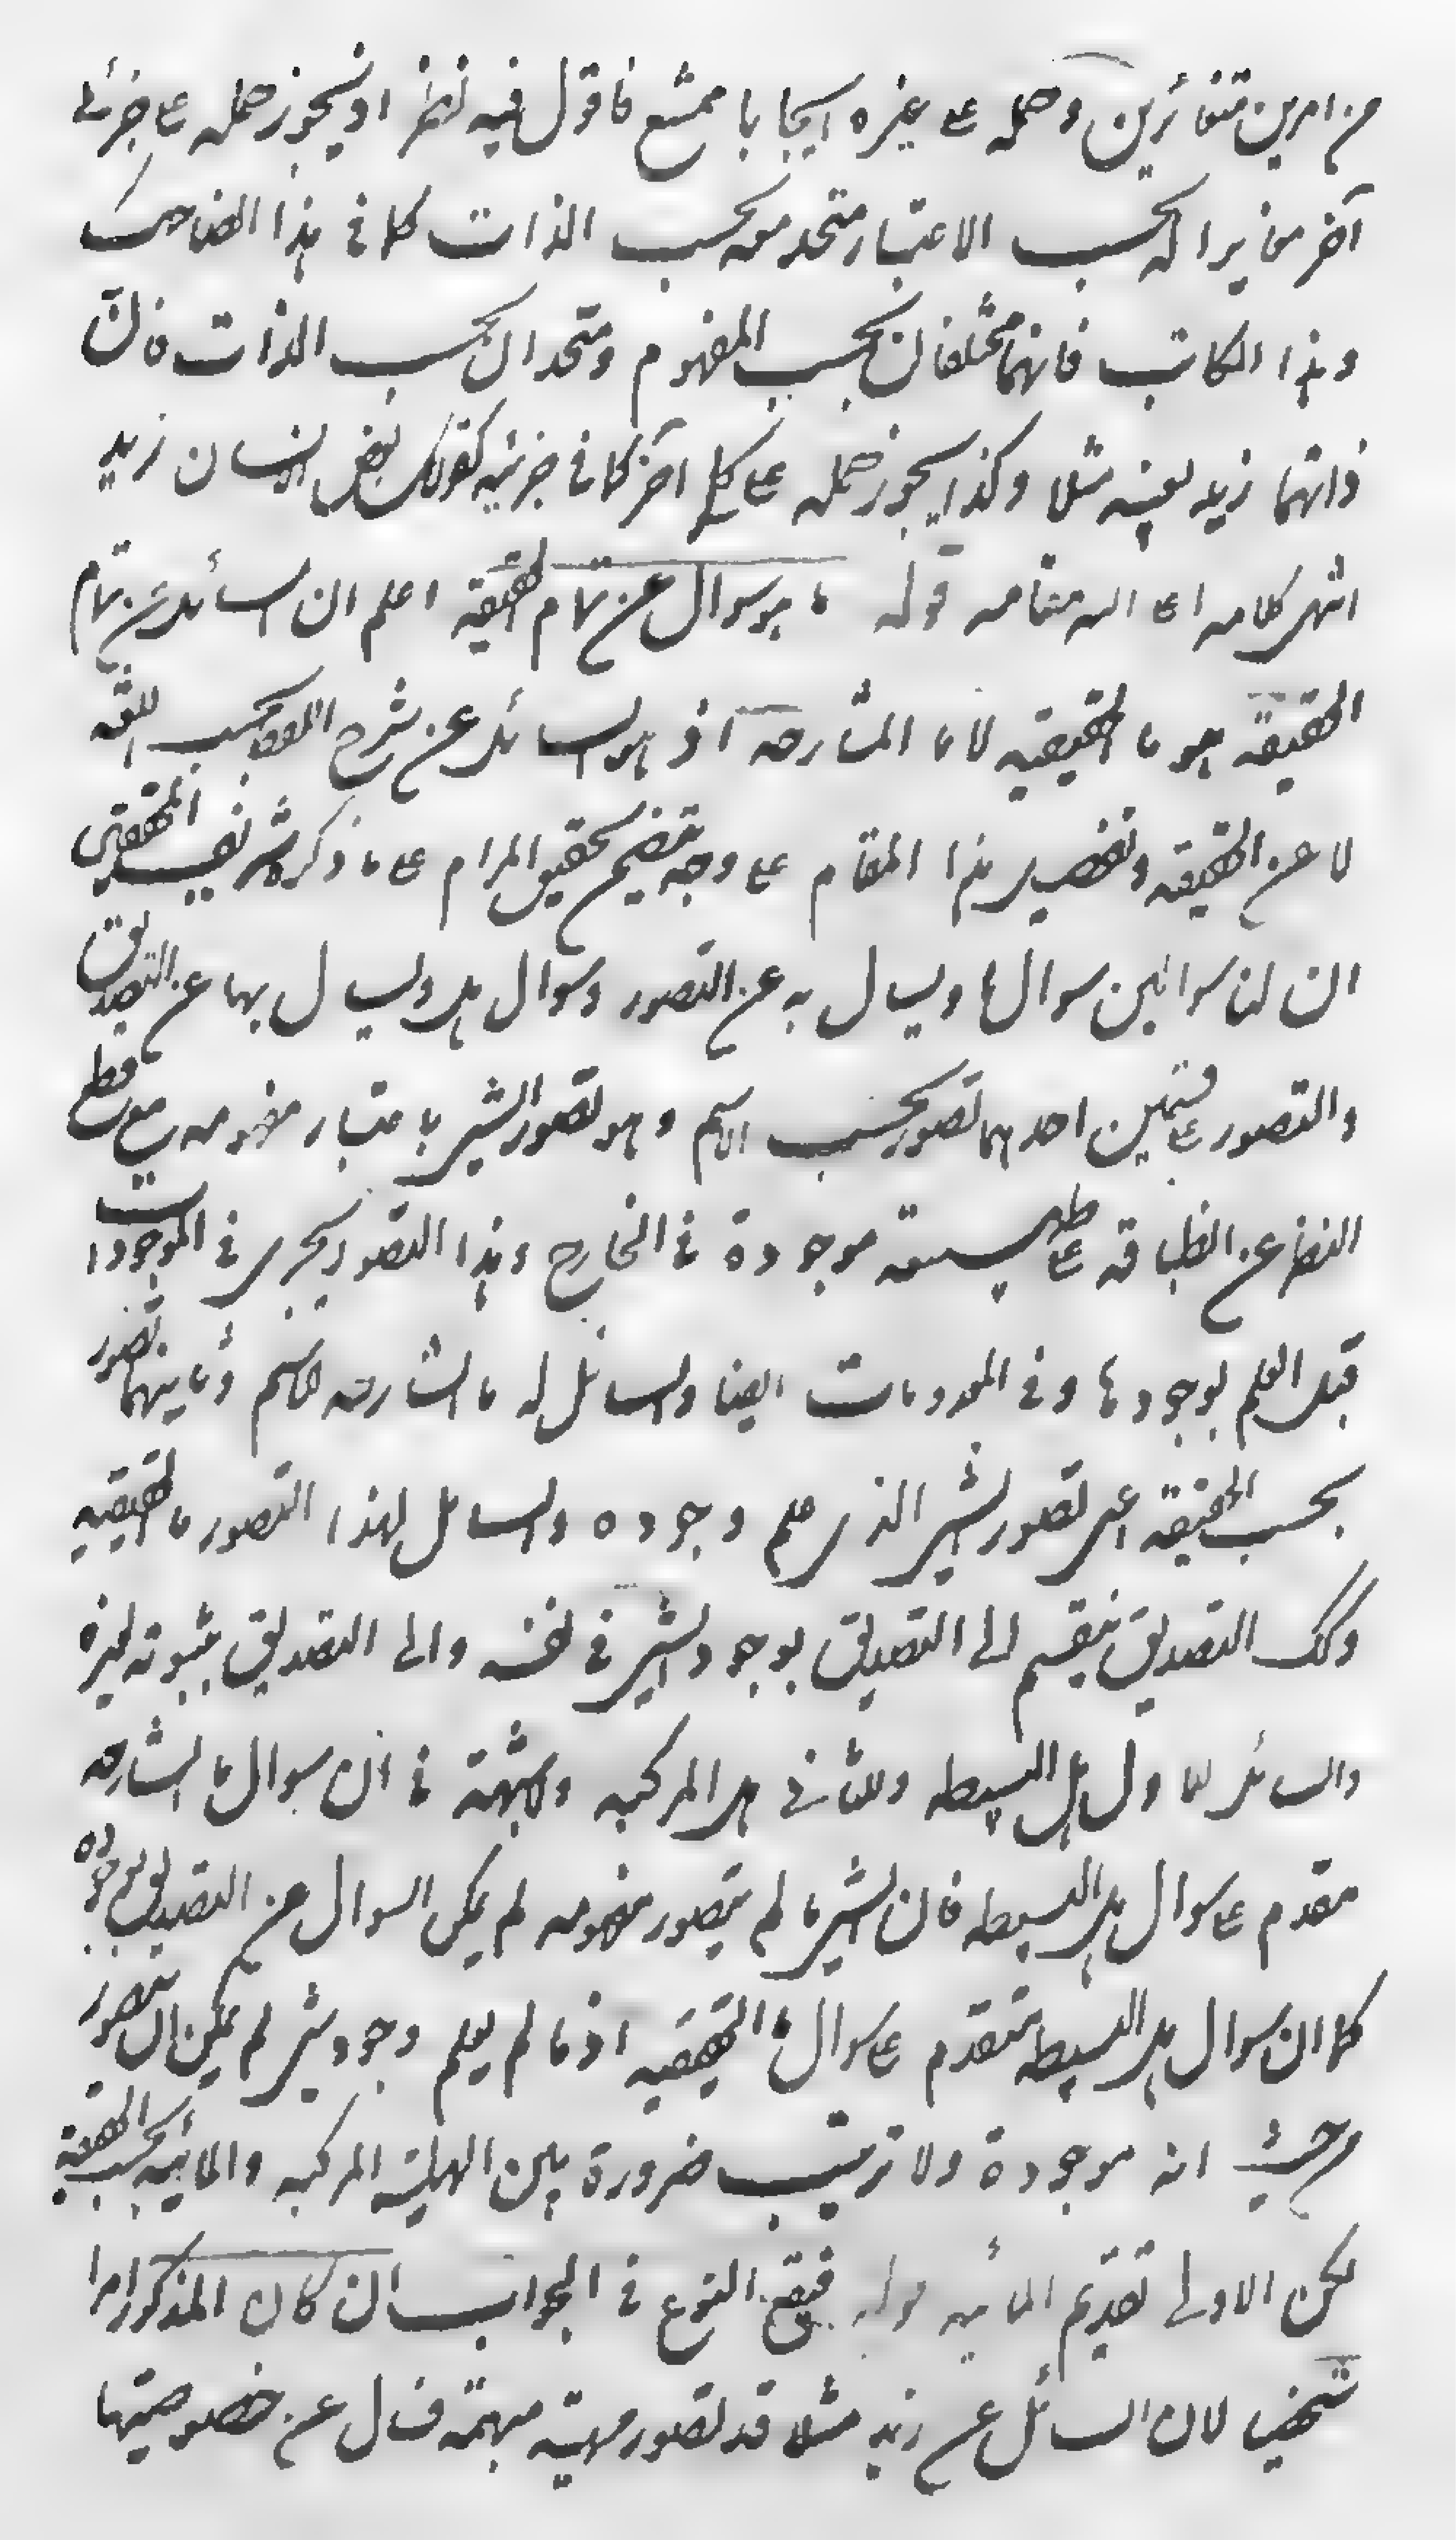 من امرين متغائرين وحمله على غيره ايجابا ممتنع فاقول فيه نظر اذ يجوز حمله على جزئى
آخر مغاير له بحسب الاعتبار متحد معه بحسب الذات كما فى هذا الضاحك
وهذا الكاتب فانهما مختلفان بحسب المفهوم ومتحدان بحسب الذات فان
ذاتهما زيد بعينه مثلا وكذا يجوز حمله على كلى آخر كما فى جزئية كقولك بعض الانسان زيد
انتهى كلامه اعلى الله مقامه قوله ما هو سوال عن تمام الحقيقة اعلم ان السائل عن تمام
الحقيقة هو ما الحقيقيه لا ما الشارحه اذ هو السائل عن شرح اللفظ بحسب اللغه
لا عن الحقيقه وتفصيل هذا المقام على وجه يتضح تحقيق المرام على ما ذكره شريف المحققين
ان لنا سوالين سوال ما ويسال به عن التصور وسوال هل ويسال بها عن التصديق
والتصور على قسمين احدهما تصور بحسب الاسم وهو تصور الشئ باعتبار مفهومه مع قطع
النظر عن انطباقه على طبيعة موجودة فى الخارج وهذا التصور يجرى فى الموجودات
قبل العلم بوجودها وفى المعدومات ايضا والسائل له ما الشارحه للاسم وثانيهما تصور
بحسب الحقيقة اعنى تصور الشئ الذى علم وجوده والسائل لهذا التصور ما الحقيقيه
وكذلك التصديق ينقسم الى التصديق بوجود الشئ فى نفسه والى التصديق بثبوته لغيره
والسائل للاول هل البسيطه وللثانى هل المركبه ولا شبهة فى ان سوال ما الشارحه
مقدم على سوال هل البسيطه فان الشئ ما لم يتصور مفهومه لم يمكن السوال عن التصديق بوجوده
كما ان سوال هل البسيطه متقدم على سوال ما الحقيقيه اذ ما لم يعلم وجود شئ لم يمكن ان يتصور
من حيث انه موجودة ولا ترتيب ضرورة بين الهلية المركبه والمائيه بحسب الحقيقة
لكن الاولى تقديم المائيه قوله فيقع النوع فى الجواب ان كان المذكور امرا
شخصيا لان السائل عن زيد مثلا قد تصور مهية مبهمة فسال عن خصوصيتها